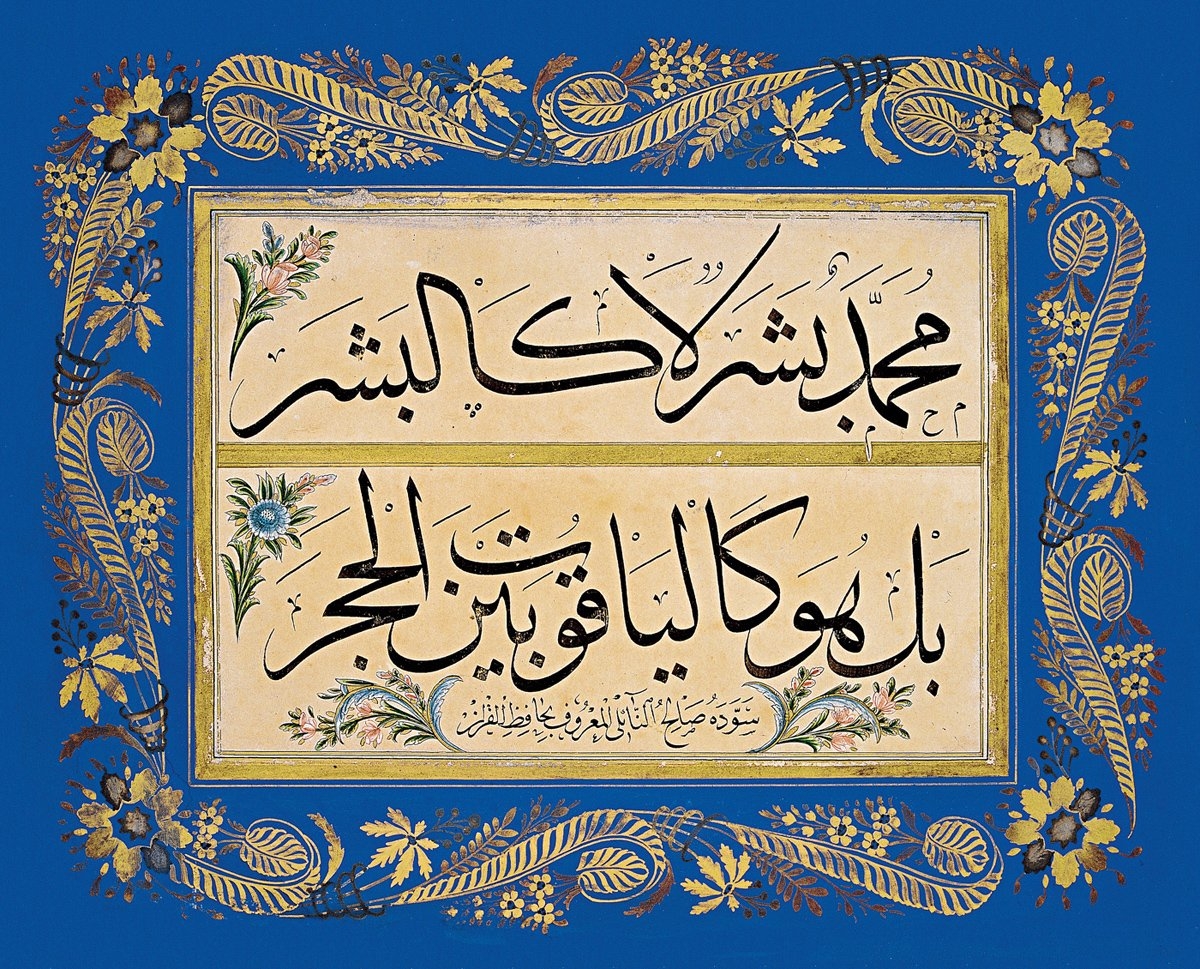 محمد بشر لا كالبشر
بل هو كالياقوت بين الحجر
سوده صالح النائلى المعروف بحافظ القرآن